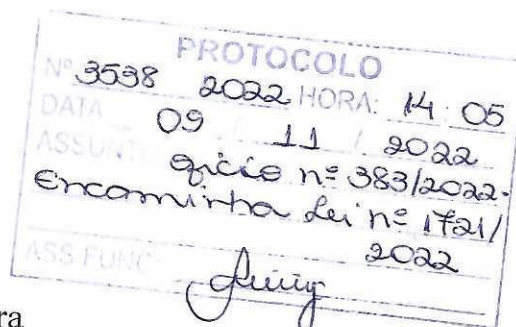 PROTOCOLO
Nº 3538 2022 HORA: 14 05
DATA 09 11 / 2022
ASSUNTO Ofício nº 383/2022.
Encaminha Lei nº 1721/
2022
ASS FUNC
ra